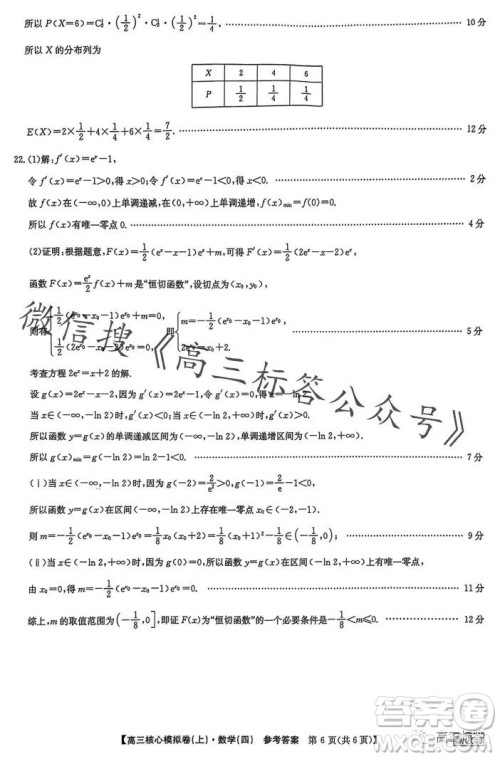 所以 P(X=6)=C¹₂·(1/2)²·C²₂·(1/2)²=1/4, 10分
所以 X 的分布列为
X 2 4 6
P 1/2 1/4 1/4
E(X)=2×1/2+4×1/4+6×1/4=7/2. 12分
22.(1)解:f′(x)=eˣ-1,
令 f′(x)=eˣ-1>0,得 x>0;令 f′(x)=eˣ-1<0,得 x<0. 2分
故 f(x)在(-∞,0)上单调递减,在(0,+∞)上单调递增, f(x)min=f(0)=0.
所以 f(x)有唯一零点0. 4分
(2)证明:根据题意,F(x)=1/2(eˣ-x-1)eˣ+m,可得 F′(x)=1/2(2eˣ-x-2)eˣ,
函数 F(x)=eˣ/2 f(x)+m是“恒切函数”,设切点为(x₀,y₀),
则有{1/2(eˣ⁰-x₀-1)eˣ⁰+m=0, 1/2(2eˣ⁰-x₀-2)eˣ⁰=0, 即{m=-1/2(eˣ⁰-x₀-1)eˣ⁰, 2eˣ⁰-x₀-2=0. 5分
考查方程 2eˣ=x+2的解.
设 g(x)=2eˣ-x-2,因为 g′(x)=2eˣ-1,令 g′(x)=2eˣ-1=0,解得 x=-ln 2.
当 x∈(-∞,-ln 2)时,g′(x)<0;当 x∈(-ln 2,+∞)时,g′(x)>0.
所以函数 y=g(x)的单调递减区间为(-∞,-ln 2),单调递增区间为(-ln 2,+∞).
所以 g(x)min=g(-ln 2)=ln 2-1<0. 7分
(ⅰ)当 x∈(-∞,-ln 2)时,因为 g(-2)=2/e²>0,g(-1)=2/e-1<0,
所以函数 y=g(x)在区间(-∞,-ln 2)上存在唯一零点 x₀∈(-2,-1).
则 m=-1/2(eˣ⁰-x₀-1)eˣ⁰=1/8x₀(x₀+2)=1/8(x₀+1)²-1/8∈(-1/8,0); 9分
(ⅱ)当 x∈(-ln 2,+∞)时,因为 g(0)=0,所以函数 y=g(x)在区间(-ln 2,+∞)上有唯一零点0,
由 x₀=0,得 m=-1/2(eˣ⁰-x₀-1)eˣ⁰=0. 11分
综上,m的取值范围为(-1/8,0],即证 F(x)为“恒切函数”的一个必要条件是-1/8<m≤0. 12分
微信搜《高三标答公众号》
【高三核心模拟卷(上)·数学(四) 参考答案 第6页(共6页)】